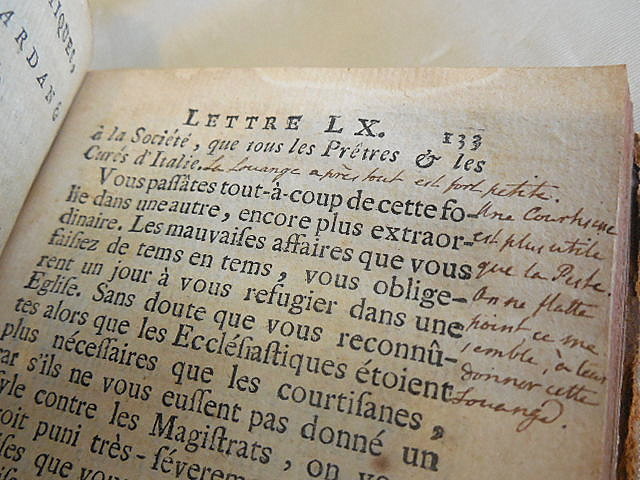 TIQUES,
ARDANG
LETTRE LX. 133
à la Société, que tous les Prêtres & les
Curés d'Italie. La Louange apres tout est fort petite.
Vous passâtes tout-à-coup de cette fo- Une Courtisane
lie dans une autre, encore plus extraor- est plus utile
dinaire. Les mauvaises affaires que vous que la Peste.
faisiez de tems en tems, vous oblige- On ne flatte
rent un jour à vous refugier dans une point ce me
Eglise. Sans doute que vous reconnû- semble, à leur
tes alors que les Ecclésiastiques étoient donner cette
plus nécessaires que les courtisanes, Louange.
car s'ils ne vous eussent pas donné un
yle contre les Magistrats, on vo
roit puni très-sévereme
ises que vou